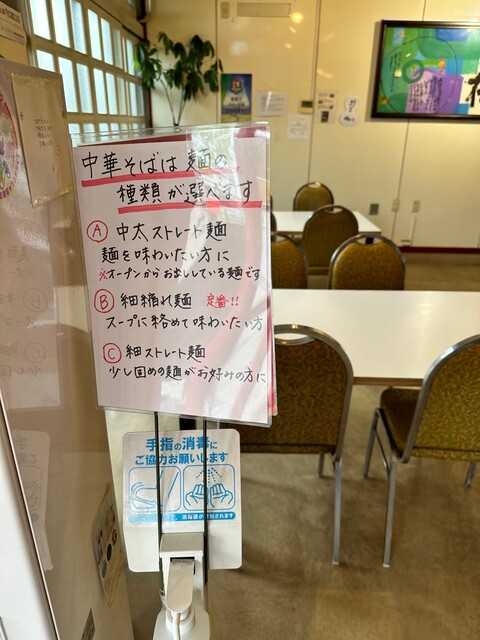 中華そばは麺の
種類が選べます
Ⓐ 中太ストレート麺
麺を味わいたい方に
※オープンからお出ししている麺です
Ⓑ 細縮れ麺 定番!!
スープに絡めて味わいたい方
Ⓒ 細ストレート麺
少し固めの麺がお好みの方に
手指の消毒に
ご協力お願いします